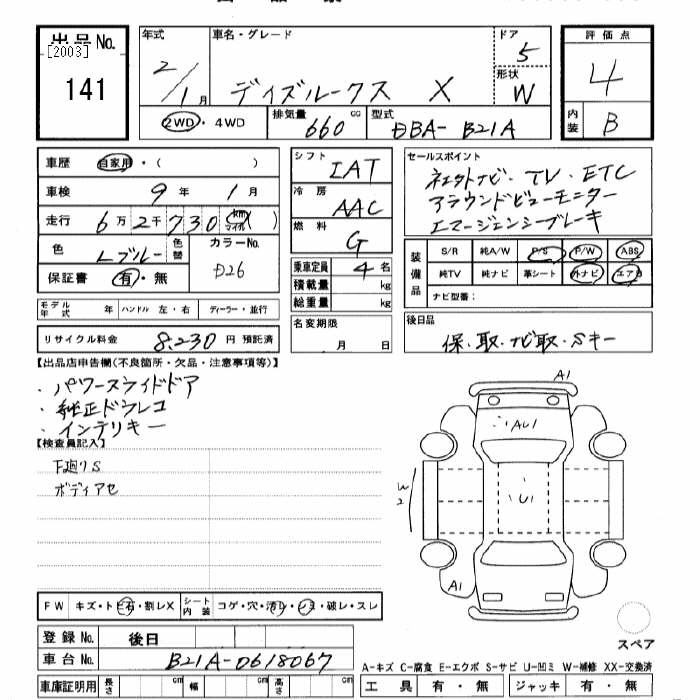 出品No.
[2003]
141
年式
2/1月
車名・グレード
デイズルークス X
ドア
5
形状
W
評価点
4
内装
B
2WD・4WD
排気量
660 cc
型式
DBA-B21A
車歴 自家用・( )
車検 9年 1月
走行 6万2千730 (km マイル)
色 Lブルー 色替
カラーNo.
保証書 有・無
モデル年式 年 ハンドル 左・右 ディーラー・並行
リサイクル料金 8,230円 預託済
シフト IAT
冷房 AAC
燃料 G
乗車定員 4名
積載量 kg
総重量 kg
名変期限
月 日
セールスポイント
ネxットナビ・TV・ETC
アラウンドビューモニター
エマージェンシーブレーキ
装備品
S/R 純A/W P/S P/W ABS
純TV 純ナビ 革シート 外ナビ エアB
ナビ型番:
後日品
保・取・ナビ取・Sキー
【出品店申告欄(不良箇所・欠品・注意事項等)】
・パワースライドドア
・純正ドラレコ
・インテリキー
【検査員記入】
下廻りS
ボディアセ
A1
AU1
U1
W2
A1
スペア
FW キズ・トビ石・割レX
シート内装 コゲ・穴・汚レ・シミ・破レ・スレ
登録No. 後日
車台No. B21A-0618067
A-キズ C-腐食 E-エクボ S-サビ U-凹ミ W-補修 XX-交換済
車庫証明用 長さ cm 幅 cm 高さ cm
工具 有・無 ジャッキ 有・無